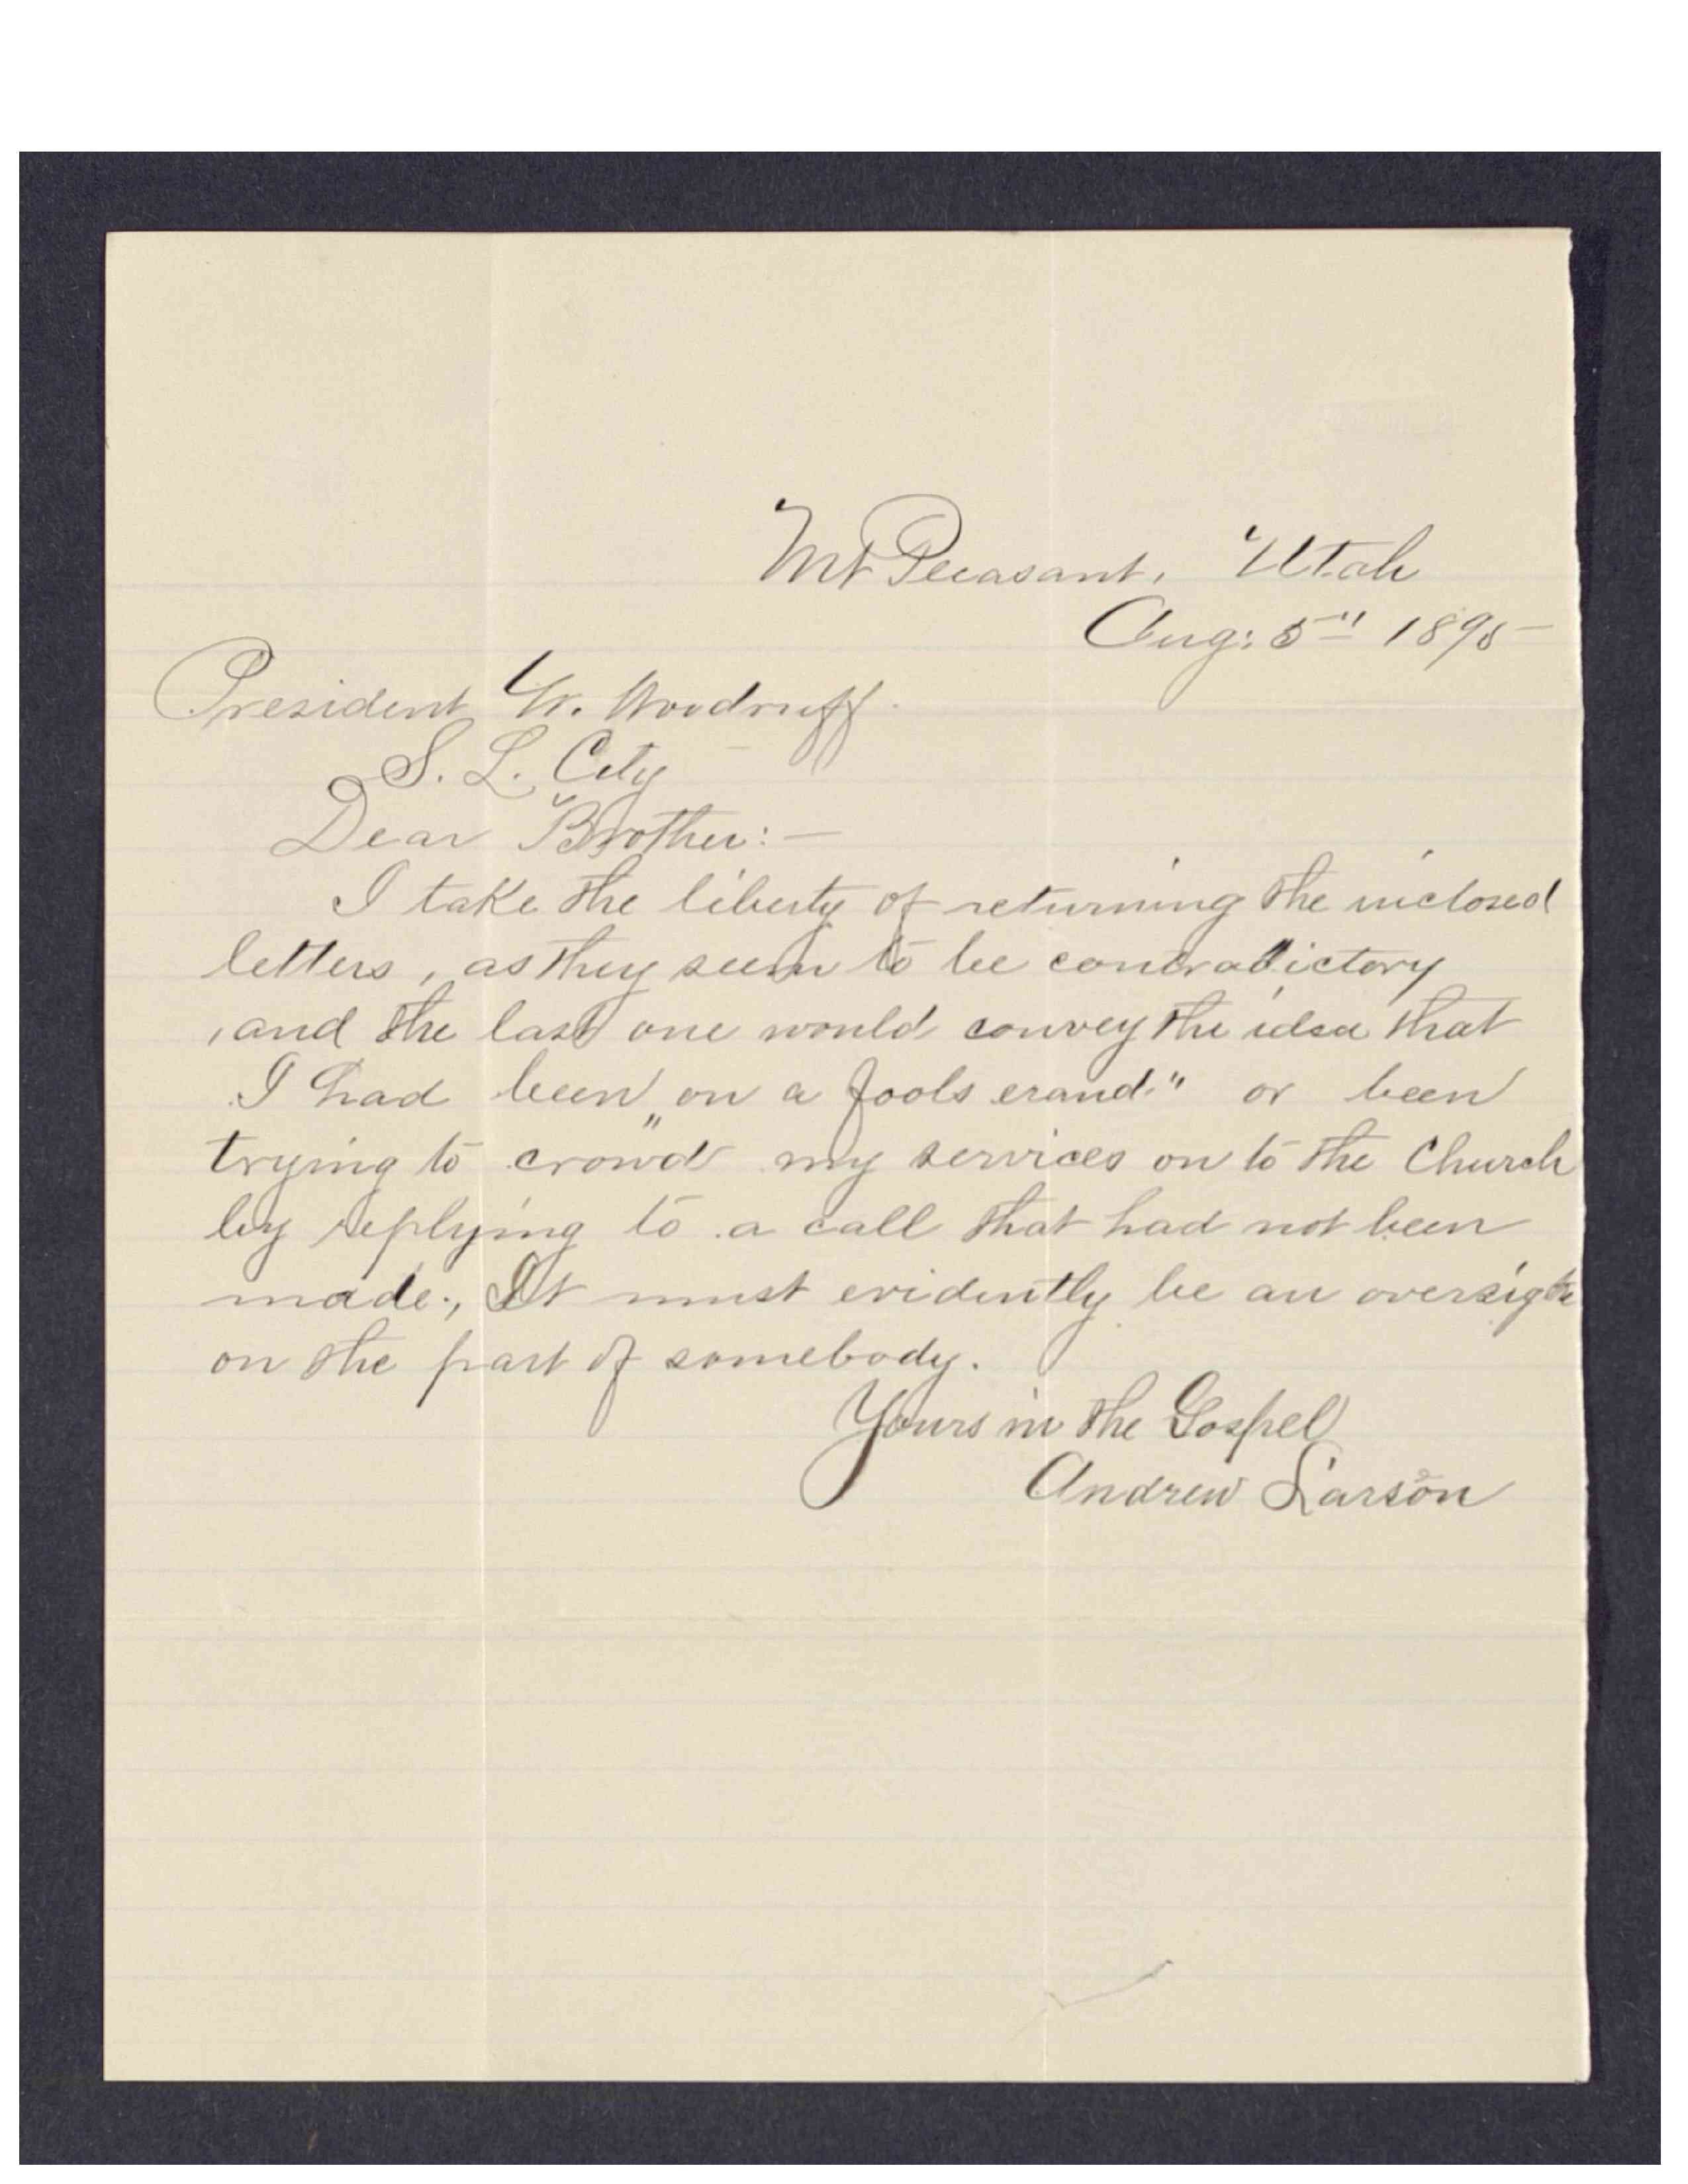 Mt Pleasant, Utah
Aug: 5th 1895
President W. Woodruff.
S. L. City
Dear Brother:—
I take the liberty of returning the inclosed
letters, as they seem to be contradictory
, and the last one would convey the idea that
I had been „on a fools erand." or been
trying to crowd my services on to the Church
by replying to a call that had not been
made., It must evidently be an oversight
on the part of somebody.
Yours in the Gospel
Andrew Larson